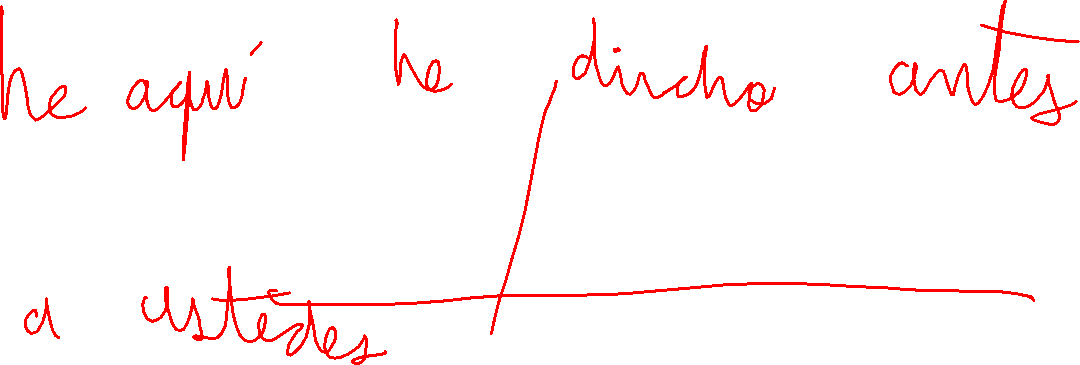 he aquí he dincho antes
a ustedes